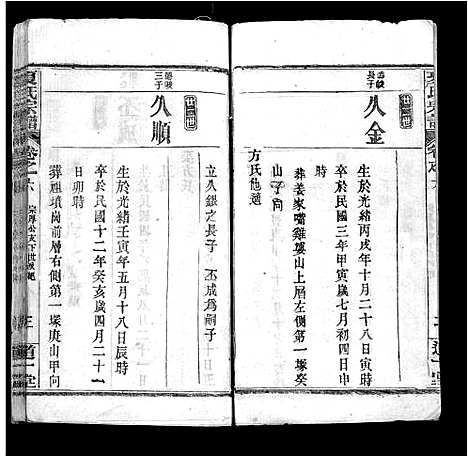 長子
久金
生於光緒丙戌年十月二十八日寅時
卒於民國三年甲寅歲七月初四日申
時葬姜家嘴雞壟山上層左側第一塚癸
山子向
方氏他適
立久銀之長子丕成爲嗣子
三子
久順
生於光緒壬寅年五月十八日辰時
卒於民國十二年癸亥歲四月二十
日卯時
葬祖墳崗前層右側第一塚庚山甲向
夏氏宗譜
卷之六
道一堂